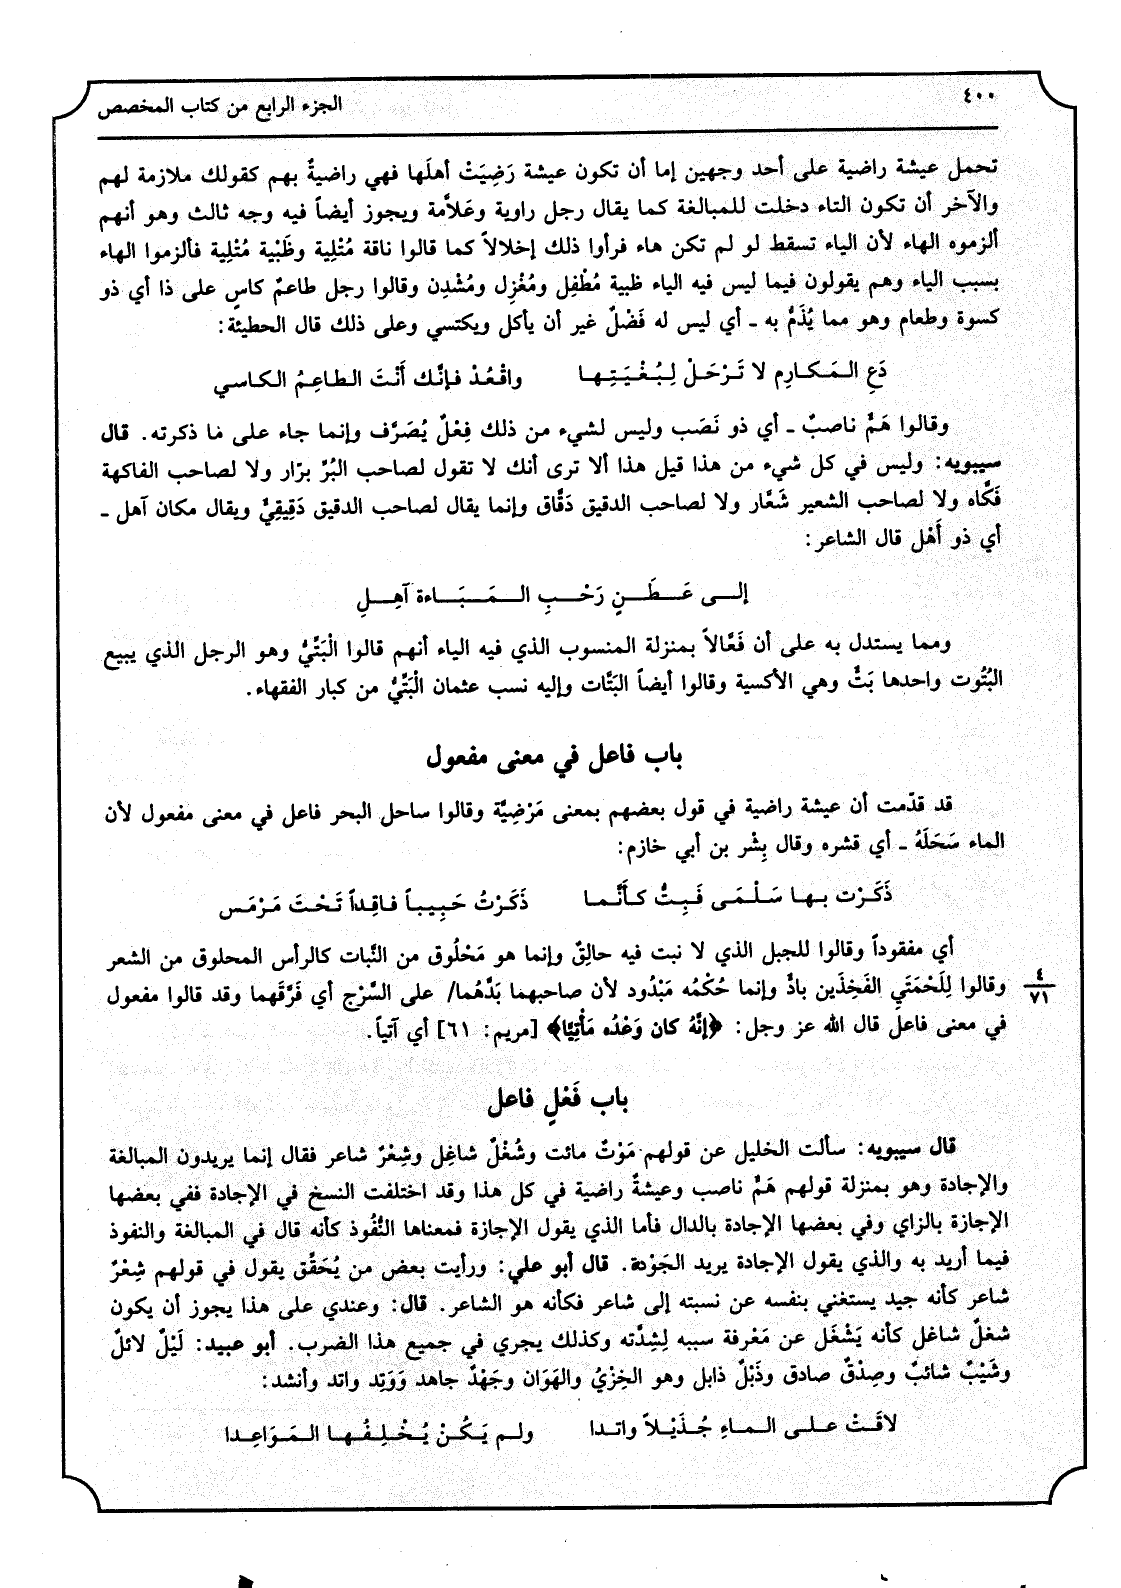 ٤٠٠
الجزء الرابع من كتاب المخصص
تحمل عيشة راضية على أحد وجهين إما أن تكون عيشة رَضِيَتْ أهلَها فهي راضيةٌ بهم كقولك ملازمة لهم
والآخر أن تكون التاء دخلت للمبالغة كما يقال رجل راوية وعَلاَّمة ويجوز أيضاً فيه وجه ثالث وهو أنهم
ألزموه الهاء لأن الياء تسقط لو لم تكن هاء فرأوا ذلك إخلالاً كما قالوا ناقة مُتْلِية وظَبْية مُتْلِية فألزموا الهاء
بسبب الياء وهم يقولون فيما ليس فيه الياء ظبية مُطْفِل ومُغْزِل ومُشْدِن وقالوا رجل طاعمٌ كاسٍ على ذا أي ذو
كسوة وطعام وهو مما يُذَمُّ به ـ أي ليس له فَضْلٌ غير أن يأكل ويكتسي وعلى ذلك قال الحطيئة:
دَعِ المَكارِم لا تَرْحَلْ لِبُغْيَتِها واقْعُدْ فإنَّك أَنْتَ الطاعِمُ الكاسي
وقالوا هَمٌّ ناصبٌ ـ أي ذو نَصَب وليس لشيء من ذلك فِعْلٌ يُصَرَّف وإنما جاء على ما ذكرته. قال
سيبويه: وليس في كل شيء من هذا قيل هذا ألا ترى أنك لا تقول لصاحب البُرّ برّار ولا لصاحب الفاكهة
فَكَّاه ولا لصاحب الشعير شَعَّار ولا لصاحب الدقيق دَقَّاق وإنما يقال لصاحب الدقيق دَقِيقِيٌّ ويقال مكان آهل ـ
أي ذو أَهْل قال الشاعر:
إلى عَطَنٍ رَحْبِ المَبَاءة آهِلِ
ومما يستدل به على أن فَعَّالاً بمنزلة المنسوب الذي فيه الياء أنهم قالوا الْبَتِّيُّ وهو الرجل الذي يبيع
البُتُوت واحدها بَتٌّ وهي الأكسية وقالوا أيضاً البَتَّات وإليه نسب عثمان الْبَتِّيُّ من كبار الفقهاء.
باب فاعل في معنى مفعول
قد قدّمت أن عيشة راضية في قول بعضهم بمعنى مَرْضِيَّة وقالوا ساحل البحر فاعل في معنى مفعول لأن
الماء سَحَلَهُ ـ أي قشره وقال بِشْر بن أبي خازم:
ذَكَرْت بها سَلْمَى فَبِتُّ كأَنَّما ذَكَرْتُ حَبِيباً فاقِداً تَحْتَ مَرْمَس
أي مفقوداً وقالوا للجبل الذي لا نبت فيه حالِقٌ وإنما هو مَحْلُوق من النَّبات كالرأس المحلوق من الشعر
وقالوا لِلَحْمَتَي الفَخِذَين بادٌّ وإنما حُكْمُه مَبْدُود لأن صاحبهما بَدَّهُما/ على السَّرْج أي فَرَّقَهما وقد قالوا مفعول
٤
٧١
في معنى فاعل قال الله عز وجل: ﴿إنَّهُ كان وَعْدُه مَأْتِيًّا﴾ [مريم: ٦١] أي آتياً.
باب فَعْلٍ فاعل
قال سيبويه: سألت الخليل عن قولهم مَوْتٌ مائت وشُغْلٌ شاغِل وشِعْرٌ شاعر فقال إنما يريدون المبالغة
والإجادة وهو بمنزلة قولهم هَمٌّ ناصب وعيشةٌ راضية في كل هذا وقد اختلفت النسخ في الإجادة ففي بعضها
الإجازة بالزاي وفي بعضها الإجادة بالدال فأما الذي يقول الإجازة فمعناها النُّفُوذ كأنه قال في المبالغة والنفوذ
فيما أريد به والذي يقول الإجادة يريد الجَوْدة. قال أبو علي: ورأيت بعض من يُحَقِّق يقول في قولهم شِعْرٌ
شاعر كأنه جيد يستغني بنفسه عن نسبته إلى شاعر فكأنه هو الشاعر. قال: وعندي على هذا يجوز أن يكون
شغلٌ شاغل كأنه يَشْغَل عن مَعْرفة سببه لِشِدَّته وكذلك يجري في جميع هذا الضرب. أبو عبيد: لَيْلٌ لائلٌ
وشَيْبٌ شائبٌ وصِدْقٌ صادق وذَبْلٌ ذابل وهو الخِزْيُ والهَوَان وجَهْدٌ جاهد وَوَتِد واتد وأنشد:
لاقَتْ على الماءِ جُذَيْلاً واتدا ولم يَكُنْ يُخْلِفُها المَوَاعِدا